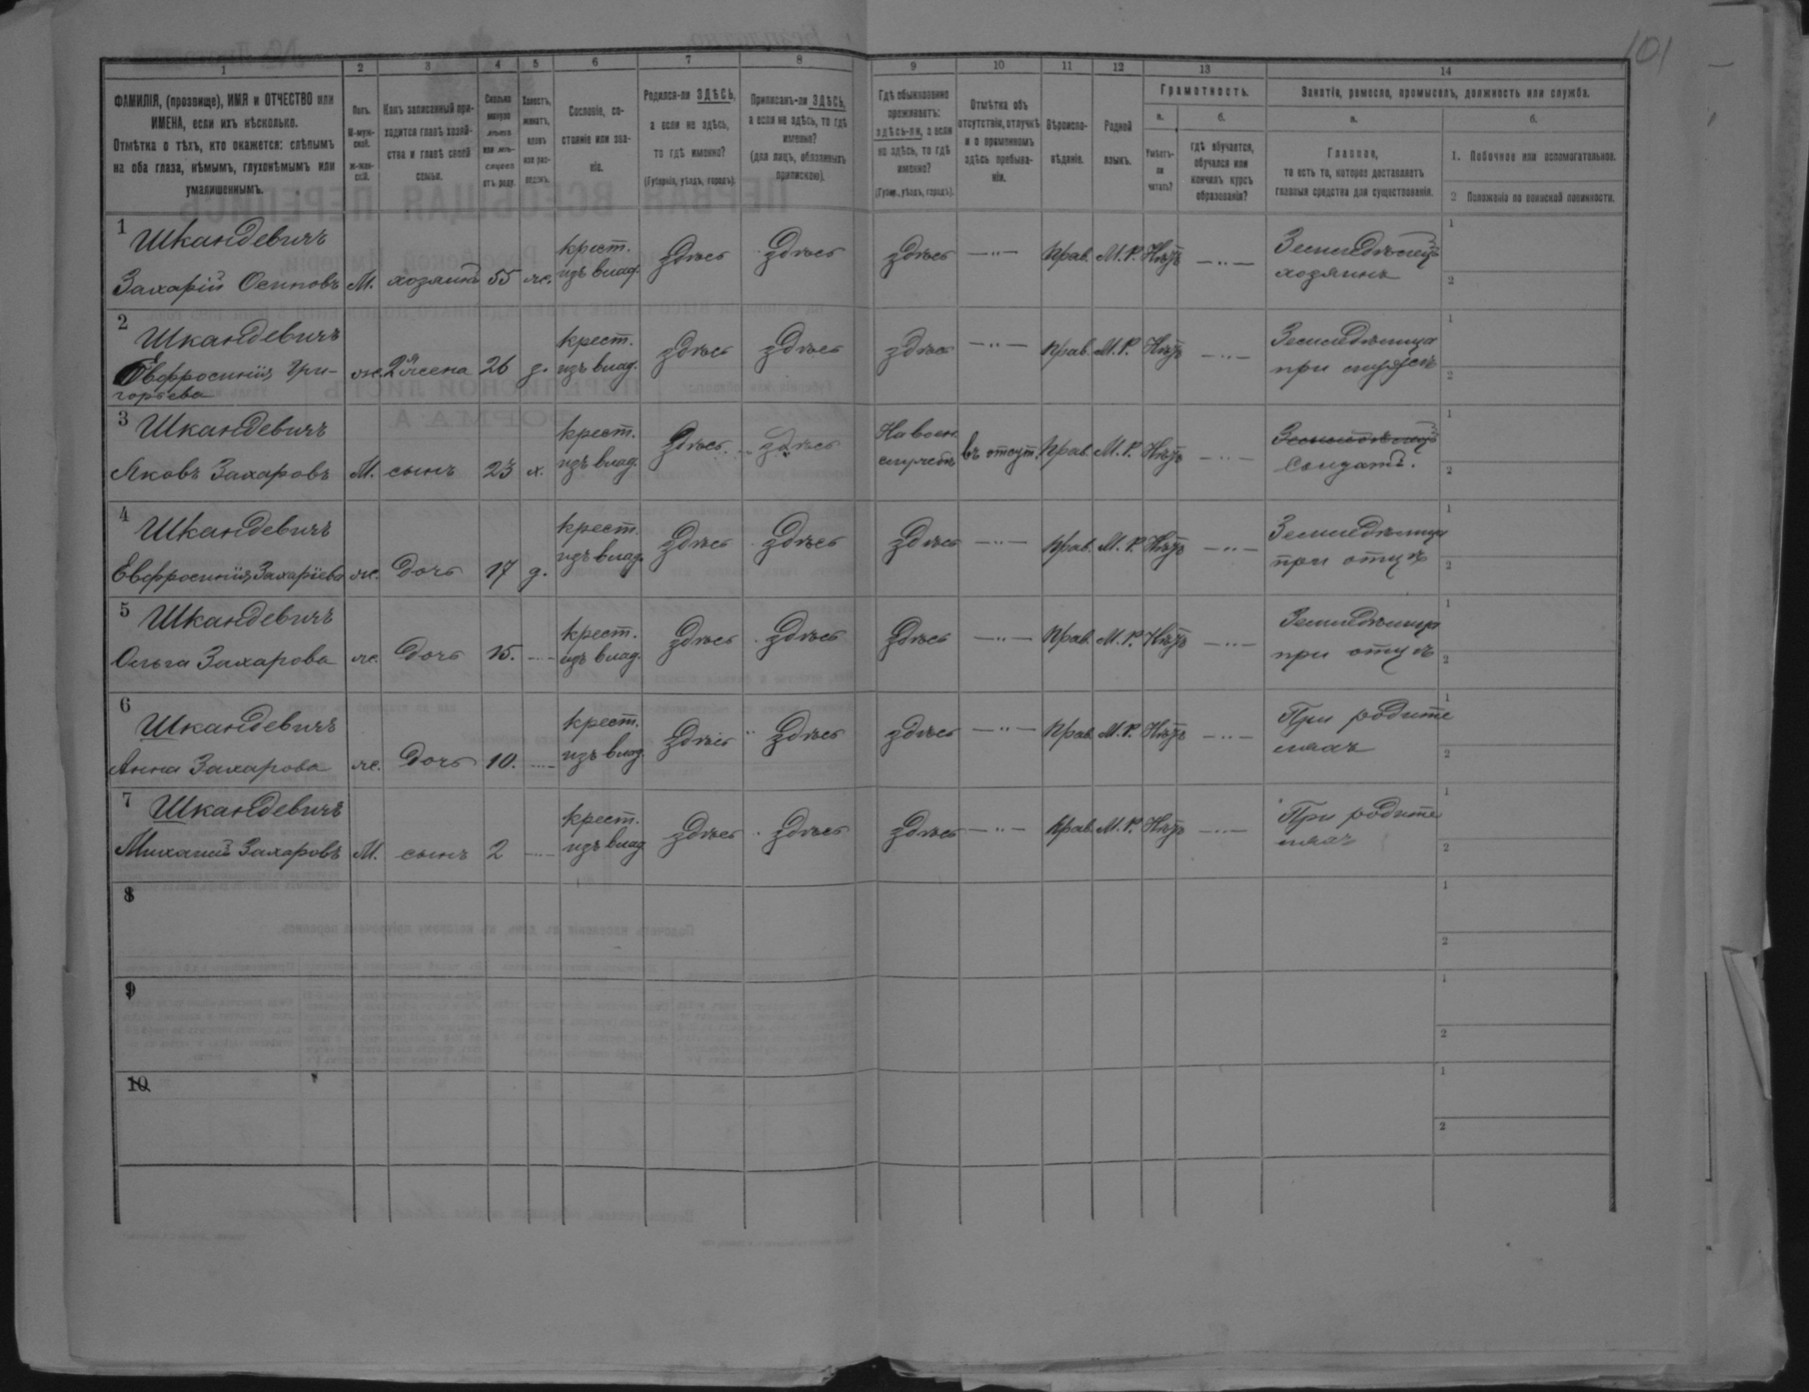 101
1 2 3 4 5 6 7 8 9 10 11 12 13 14
ФАМИЛІЯ, (прозвище), ИМЯ и ОТЧЕСТВО или
ИМЕНА, если ихъ нѣсколько.
Отмѣтка о тѣхъ, кто окажется: слѣпымъ
на оба глаза, нѣмымъ, глухонѣмымъ или
умалишеннымъ.
Полъ.
М-муж-
ской.
Ж-жен-
скій.
Какъ записанный при-
ходится главѣ хозяй-
ства и главѣ своей
семьи.
Сколько
минуло
лѣтъ
или мѣ-
сяцевъ
отъ роду.
Холостъ,
женатъ,
вдовъ
или раз-
веденъ.
Сословіе, со-
стояніе или зва-
ніе.
Родился-ли ЗДѢСЬ,
а если не здѣсь,
то гдѣ именно?
(Губернія, уѣздъ, городъ).
Приписанъ-ли ЗДѢСЬ,
а если не здѣсь, то гдѣ
именно?
(для лицъ, обязанныхъ
припискою).
Гдѣ обыкновенно
проживаетъ:
здѣсь-ли, а если
не здѣсь, то гдѣ
именно?
(Губер., уѣздъ, городъ).
Отмѣтка объ
отсутствіи, отлучкѣ
и о временномъ
здѣсь пребыва-
ніи.
Вѣроиспо-
вѣданіе.
Родной
языкъ.
Грамотность.
а.
Умѣетъ-
ли
читать?
б.
гдѣ обучается,
обучался или
кончилъ курсъ
образованія?
Занятіе, ремесло, промыселъ, должность или служба.
а.
Главное,
то есть то, которое доставляетъ
главныя средства для существованія.
б.
1. Побочное или вспомогательное.
2 Положеніе по воинской повинности.
1 Шкандевичъ крест. здѣсь здѣсь здѣсь — " — Прав. М. Р. Нѣтъ — " — Земледѣлецъ 1
Захарій Осиповъ М. хозяинъ 55 ж. изъ влад. хозяинъ 2
2 Шкандевичъ крест. здѣсь здѣсь здѣсь — " — Прав. М. Р. Нѣтъ — " — Земледѣлица 1
Евфросинія Гри- ж. 2я жена 26 з. изъ влад. при мужѣ 2
горьева
3 Шкандевичъ крест. здѣсь здѣсь На воен. въ отсут. Прав. М. Р. Нѣтъ — " — Земледѣлецъ 1
Яковъ Захаровъ М. сынъ 23 х. изъ влад. службѣ Солдатъ. 2
4 Шкандевичъ крест. здѣсь здѣсь здѣсь — " — Прав. М. Р. Нѣтъ — " — Земледѣлица 1
Евфросинія Захаріева ж. дочь 17 д. изъ влад. при отцѣ 2
5 Шкандевичъ крест. здѣсь здѣсь здѣсь — " — Прав. М. Р. Нѣтъ — " — Земледѣлица 1
Ольга Захарова ж. дочь 15. — изъ влад. при отцѣ 2
6 Шкандевичъ крест. здѣсь здѣсь здѣсь — " — Прав. М. Р. Нѣтъ — " — При родите 1
Анна Захарова ж. дочь 10. — изъ влад. ляхъ 2
7 Шкандевичъ крест. здѣсь здѣсь здѣсь — " — Прав. М. Р. Нѣтъ — " — При родите 1
Михаилъ Захаровъ М. сынъ 2 — изъ влад ляхъ 2
8 1
2
9 1
2
10 1
2